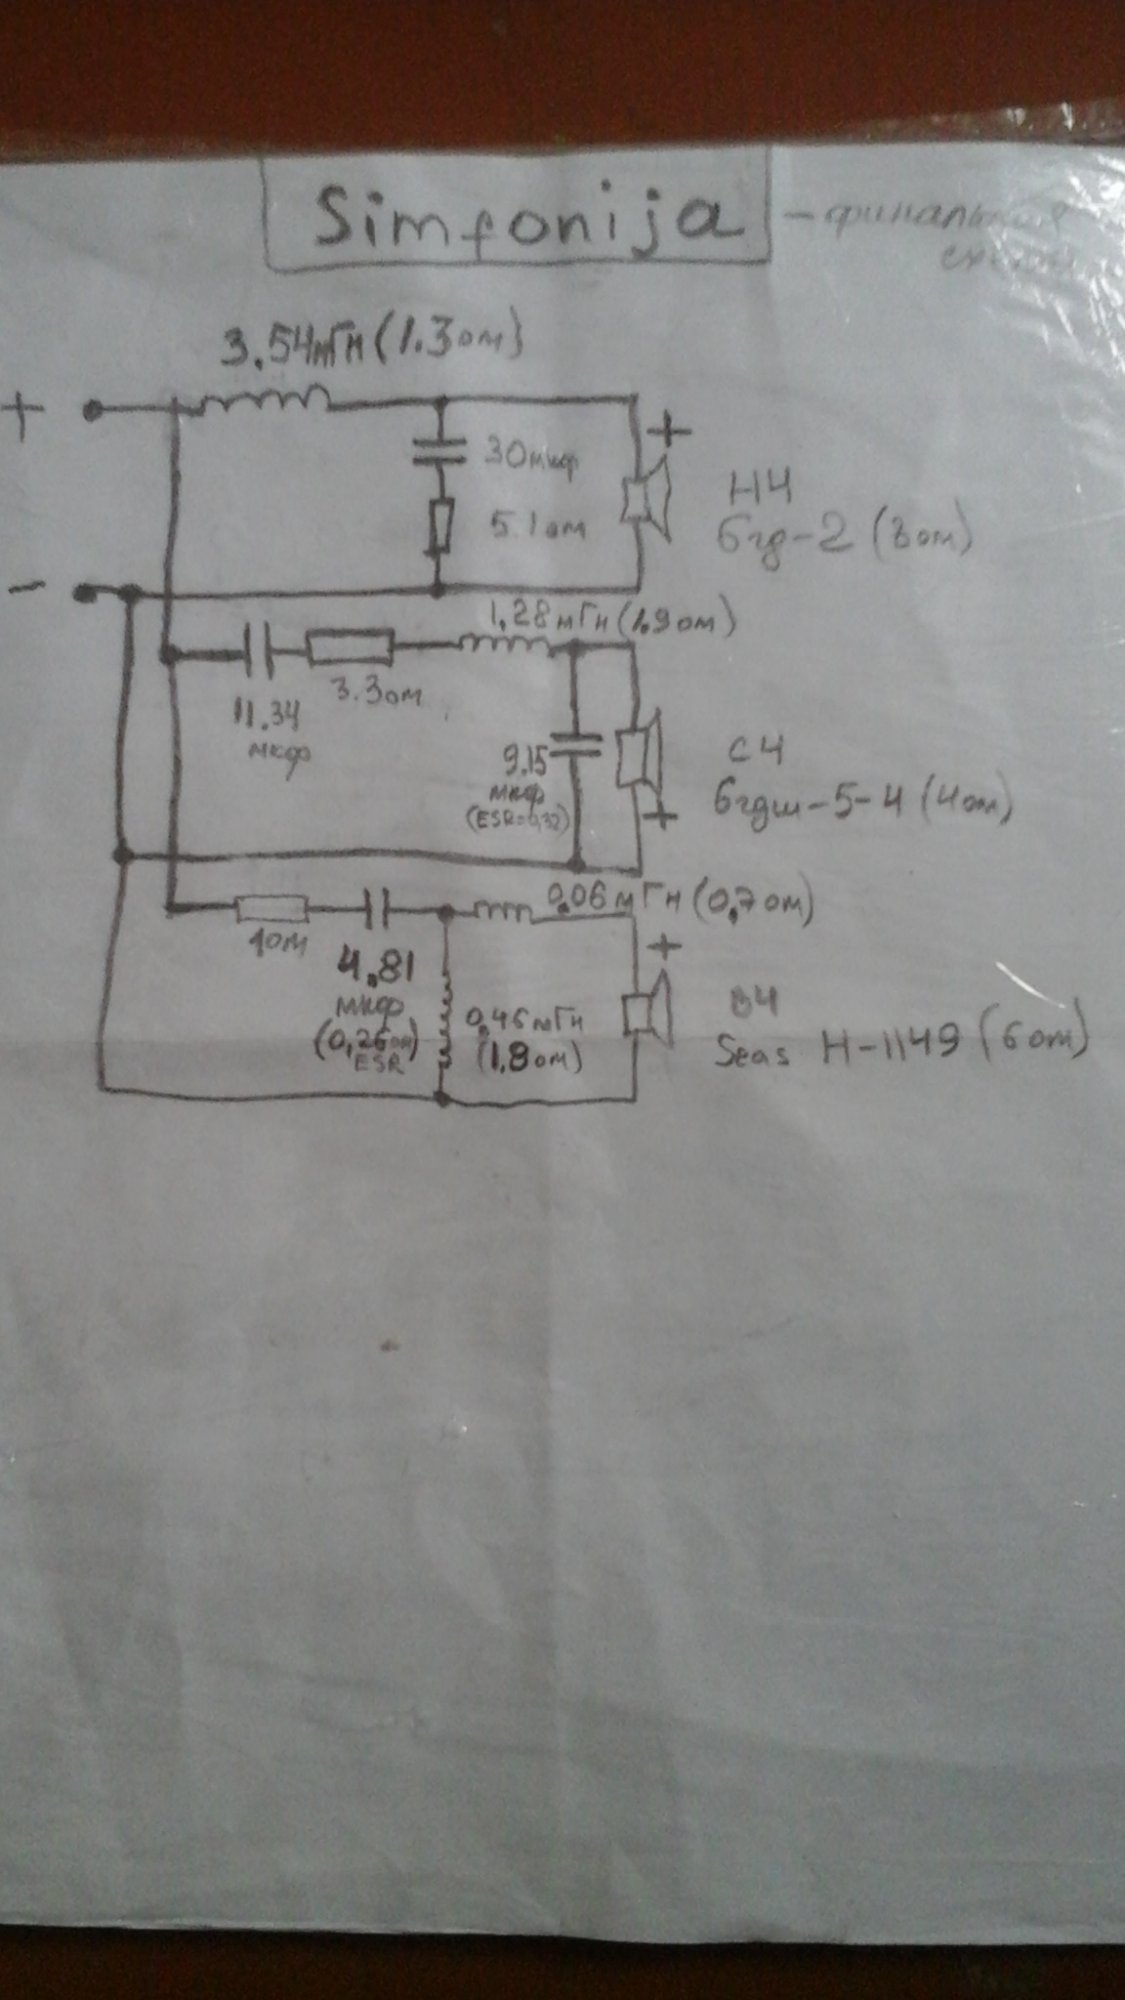 Simfonija
3.54мГн (1.3ом)
+
30мкф
+
НЧ
5.1ом
6гд-2 (3ом)
-
1,28мГн (1.9ом)
3.3ом
11.34
мкф
9.15
мкф
СЧ
6гдш-5-4 (4ом)
+
0,06мГн (0,7ом)
+
4.81
мкф
(0,26ом)
ESR
0,46мГн
(1.8ом)
ВЧ
Seas H-1149 (6ом)